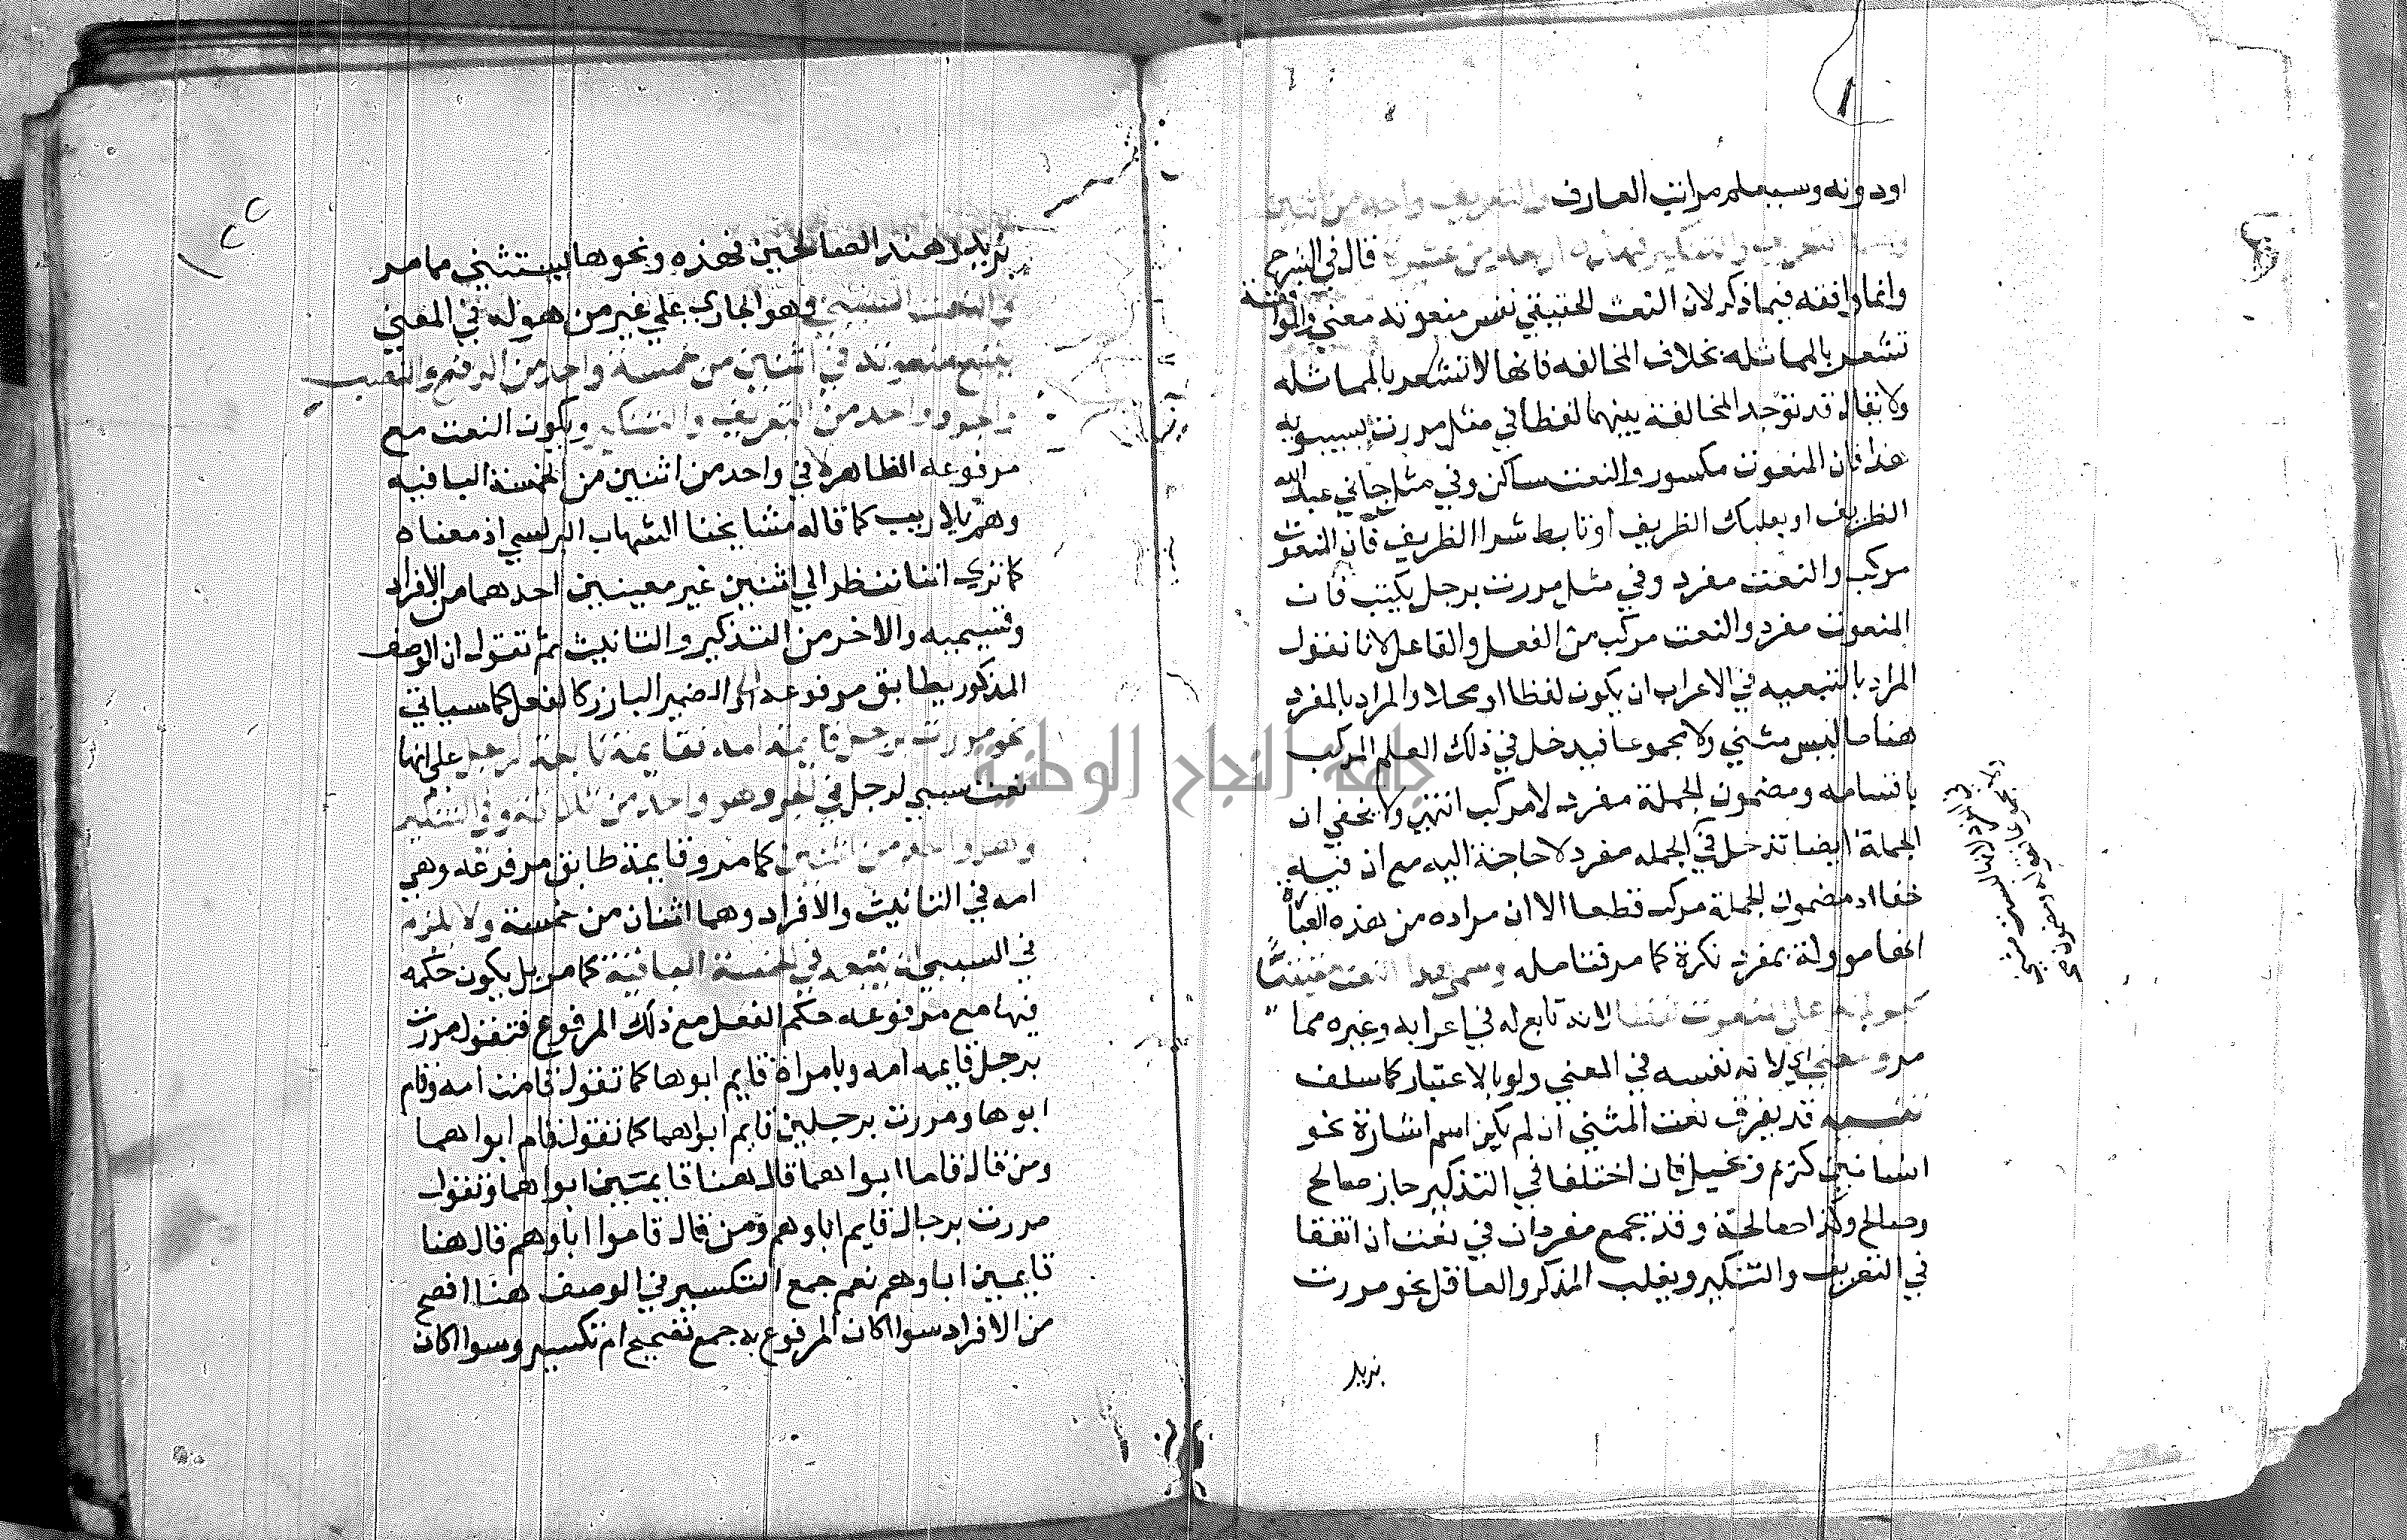 اودونه وسيعلم مراتب المعارف والتعريف واحد من اثنين
التعريف والتنكير فهذه اربعه من عشرة قال في الشرح
وانما وافقه فيما ذكر لان النعت الحقيقي نفس منعوته معني والموافقة
تشعر بالمماثله بخلاف المخالفه فانها لا تشعر بالمماثله
ولا يقال قد توجد المخالفة بينهما لفظا في مثل مررت بسيبويه
هذا فان المنعوت مكسور والنعت ساكن وفي مثل جاني عبد الله
الظريف او بعلبك الظريف او تابط شرا الظريف فان المنعوت
مركب والنعت مفرد وفي مثل مررت برجل يكتب فان
المنعوت مفرد والنعت مركب من الفعل والفاعل لانا نقول
المراد بالتبعيه في الاعراب ان يكون لفظا او محلا والمراد بالمفرد
هنا ما ليس مثني ولا مجموعا فيدخل في ذلك العلم المركب
باقسامه ومضمون الجملة مفرد لا مركب انتهي ولا يخفي ان
الجملة ايضا تدخل في الجمله مفرد لا حاجة اليه مع ان فيه
خفا اذ مضمون الجملة مركب قطعا الا ان مراده من هذه العبارة
انها موولة بمفرد نكرة كما مر فتامله وسمي هذا النعت حقيقيا
لجريانه علي منعوت لفظا لانه تابع له في اعرابه وغيره مما
مر ومعني اي لانه نفسه في المعني ولو بالاعتبار كما سلف
تنبيه قد يفرق نعت المثني ان لم يكن اسم اشارة نحو
انسانين كريم وبخيل فان اختلفا في التذكير جاز صالح
وصالح وكذا صالحة وقد يجمع مفردان في نعت ان اتفقا
في التعريف والتنكير ويغلب المذكر والعاقل نحو مررت
بزيد
بزيد وهند الصالحين فهذه ونحوها يستثني مما مر
والنعت السببي وهو الجاري علي غير من هو له في المعني
يتبع منعوته في اثنين من خمسة واحد من الرفع والنصب
والجر وواحد من التعريف والتنكير ويكون النعت مع
مرفوعه الظاهر في واحد من اثنين من الخمسة الباقيه
وهم بلا ريب كما قاله مشايخنا الشهاب البرلسي اذ معناه
كما تري اننا ننظر الي اثنين غير معينين احدهما من الافراد
وقسيميه والاخر من التذكير والتانيث ثم تقول ان الوصف
المذكور يطابق مرفوعه او الضمير البارز كالفعل كما سياتي
نحو مررت برجل قايمة امه فقايمة تابعة لرجل علي انها
نعت سببي لرجل في الجر وهو واحد من ثلاثة وفي التنكير
وهو واحد من اثنين كما مر وقايمة طابق مرفوعه وهي
امه في التانيث والافراد وهما اثنان من خمسة ولا يلزم
في السببي ان يتبعه في الخمسة الباقية كما مر بل يكون حكمه
فيها مع مرفوعه حكم الفعل مع ذلك المرفوع فتقول مررت
برجل قايمه امه وبامراة قايم ابوها كما تقول قامت امه وقام
ابوها ومررت برجلين قايم ابواهما كما تقول قام ابواهما
ومن قال قاما ابواهما قال هنا قايمين ابواهما وتقول
مررت برجال قايم اباوهم ومن قال قاموا اباوهم قال هنا
قايمين اباوهم نعم جمع التكسير في الوصف هنا افصح
من الافراد سوا اكان المرفوع به جمع تصحيح ام تكسير وسوا اكان
جامعة النجاح الوطنية